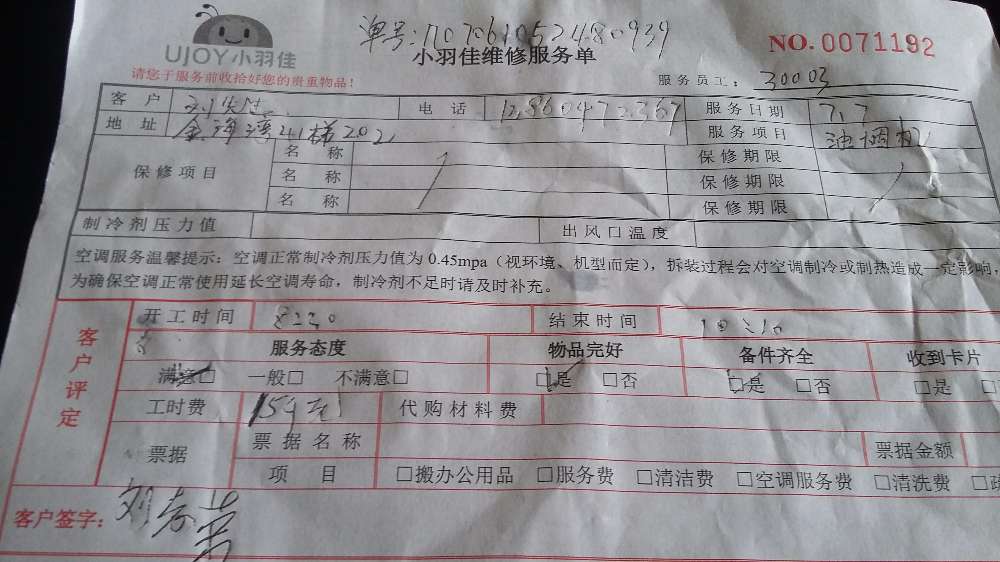 单号:1707061052480939
UJOY小羽佳
小羽佳维修服务单
NO.0071192
请您于服务前收拾好您的贵重物品!
服务员工: 30003
客 户 电 话 服务日期 7.7
地 址 金海湾41楼202 服务项目 油烟机
保修项目 名 称 保修期限
名 称 保修期限
名 称 保修期限
制冷剂压力值 出风口温度
空调服务温馨提示:空调正常制冷剂压力值为 0.45mpa(视环境、机型而定),拆装过程会对空调制冷或制热造成一定影响,
为确保空调正常使用延长空调寿命,制冷剂不足时请及时补充。
客户评定
开工时间 结束时间
服务态度 物品完好 备件齐全 收到卡片
满意□ 一般□ 不满意□ □是 □否 □是 □否 □是
工时费 159元 代购材料费
票据 票据名称 票据金额
项 目 □搬办公用品 □服务费 □清洁费 □空调服务费 □清洗费
客户签字: